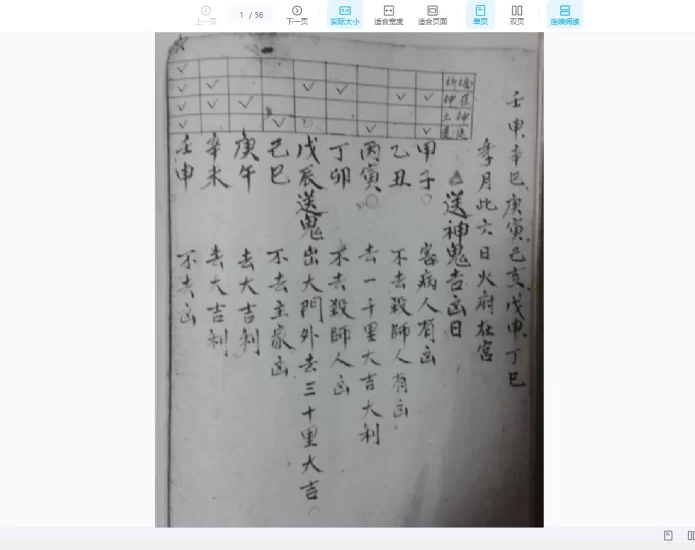 上一页
1 / 56
下一页
实际大小
适合宽度
适合页面
单页
双页
连续阅读
壬申辛巳庚寅己亥戊申丁巳
季月此六日火府在宮
送神鬼吉凶日
甲子 害病人有凶
乙丑 不去殺師人有凶
丙寅 去一千里大吉大利
丁卯 不去殺師人凶
戊辰送鬼 出大門外去三十里大吉
己巳 不去主家凶
庚午 去大吉利
辛未 去大吉利
壬申 不去凶